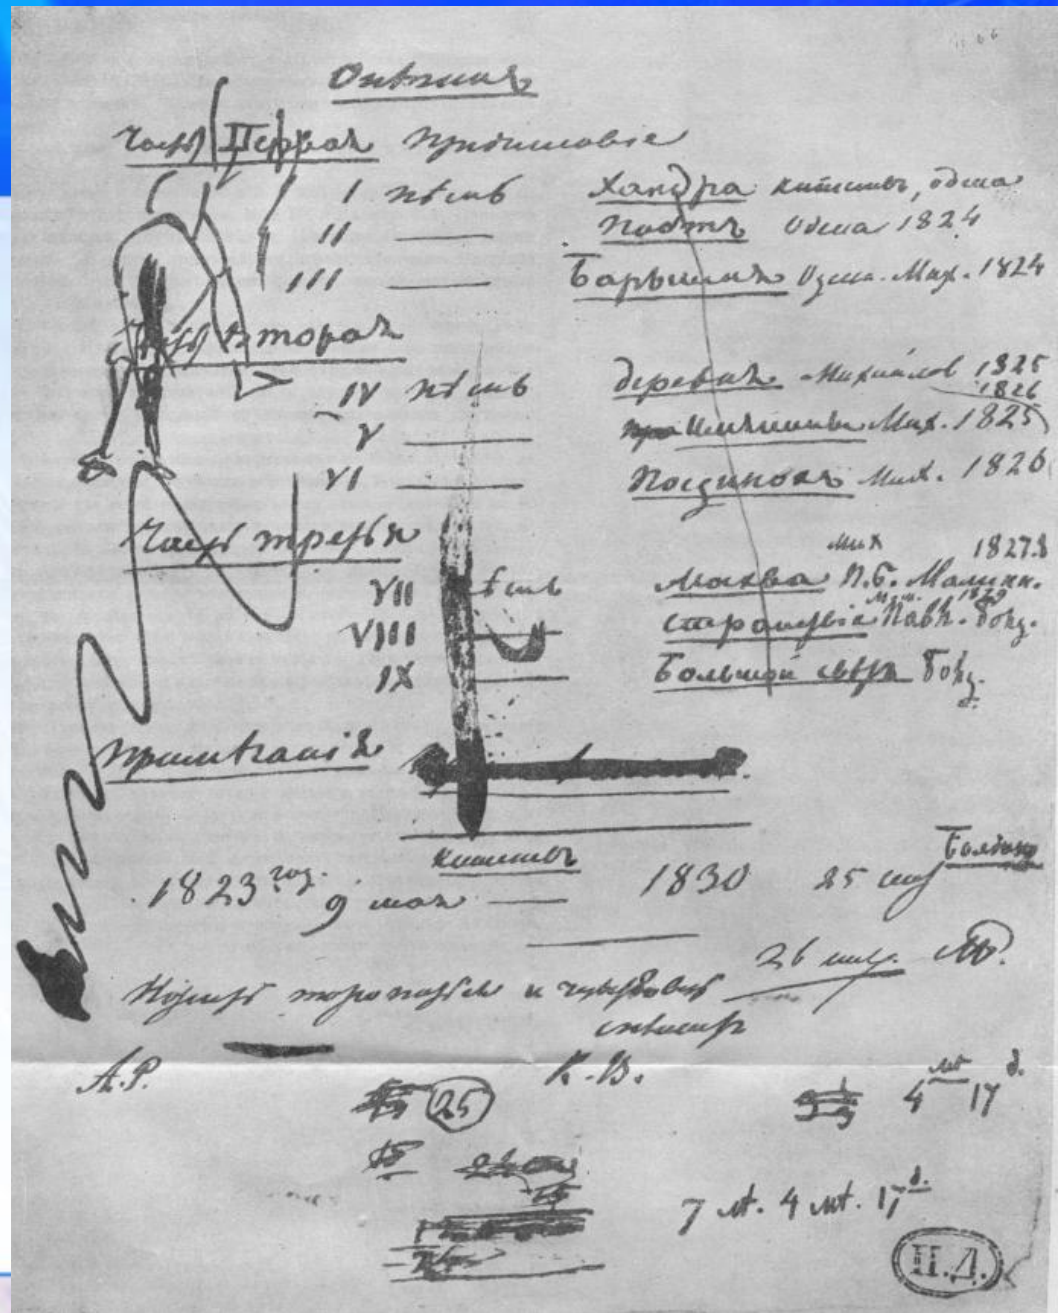 Онѣгинъ
Часть Первая Предисловіе
I пѣснь Хандра Кишеневъ, Одесса
II —— Поэтъ Одесса 1824
III —— Барышня Одесса. Мих. 1824
Часть Вторая
IV пѣснь Деревня Михайлов. 1825
1826
V —— Имянины Мих. 1825
VI —— Поединокъ Мих. 1826
Часть третья
мих 1827.8
VII пѣснь Москва П.Б. Малинн.
1829
VIII —— Странствіе Павл. Болд.
IX —— Большой свѣтъ Болд.
Примѣчанія
Кишеневъ Болдино
1823 год. 9 мая —— 1830 25 сент
26 сент. АП.
И жить торопится и чувствовать
спѣшитъ
К. В.
25
4 мѣ 17 д.
7 лѣт. 4 мѣ. 17 д.
П.Д.